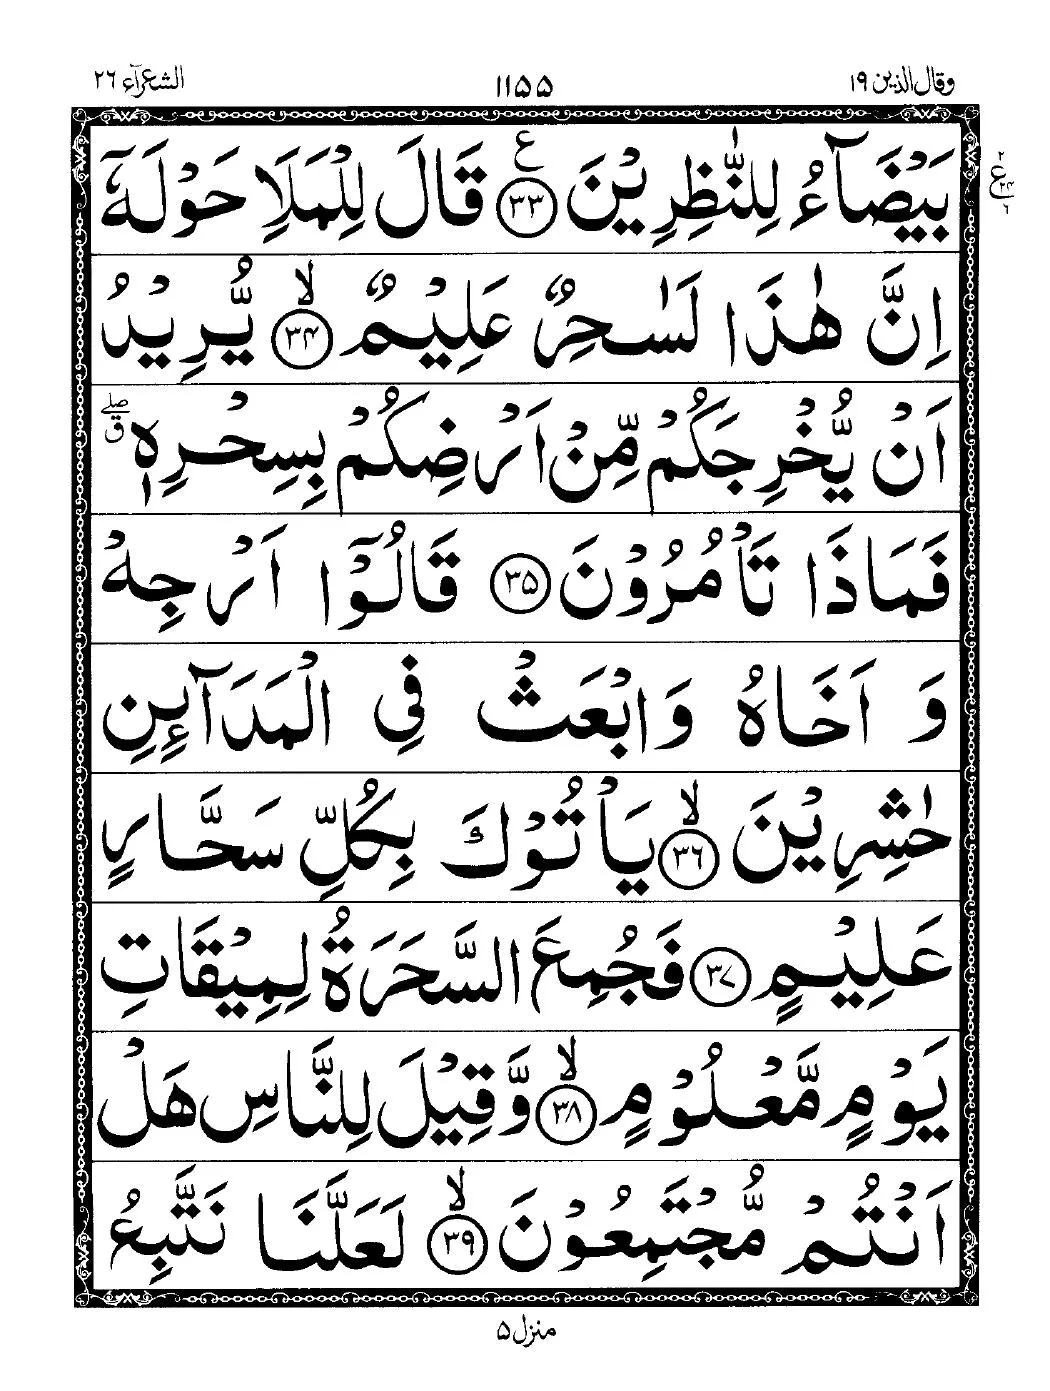 وقال الذين ١٩
١١٥٥
الشعرآء ٢٦
بَيْضَآءُ لِلنّٰظِرِيْنَ ۝٣٣ ع قَالَ لِلْمَلَاِ حَوْلَهٗۤ
ع ٢ ٢٤ ٦
اِنَّ هٰذَا لَسٰحِرٌ عَلِيْمٌ ۝٣٤ ۙ يُّرِيْدُ
اَنْ يُّخْرِجَكُمْ مِّنْ اَرْضِكُمْ بِسِحْرِهٖ ۖق
فَمَاذَا تَاْمُرُوْنَ ۝٣٥ قَالُوْۤا اَرْجِهْ
وَ اَخَاهُ وَابْعَثْ فِي الْمَدَآئِنِ
حٰشِرِيْنَ ۝٣٦ ۙ يَاْتُوْكَ بِكُلِّ سَحَّارٍ
عَلِيْمٍ ۝٣٧ فَجُمِعَ السَّحَرَةُ لِمِيْقَاتِ
يَوْمٍ مَّعْلُوْمٍ ۝٣٨ ۙ وَّقِيْلَ لِلنَّاسِ هَلْ
اَنْتُمْ مُّجْتَمِعُوْنَ ۝٣٩ ۙ لَعَلَّنَا نَتَّبِعُ
منزل ٥